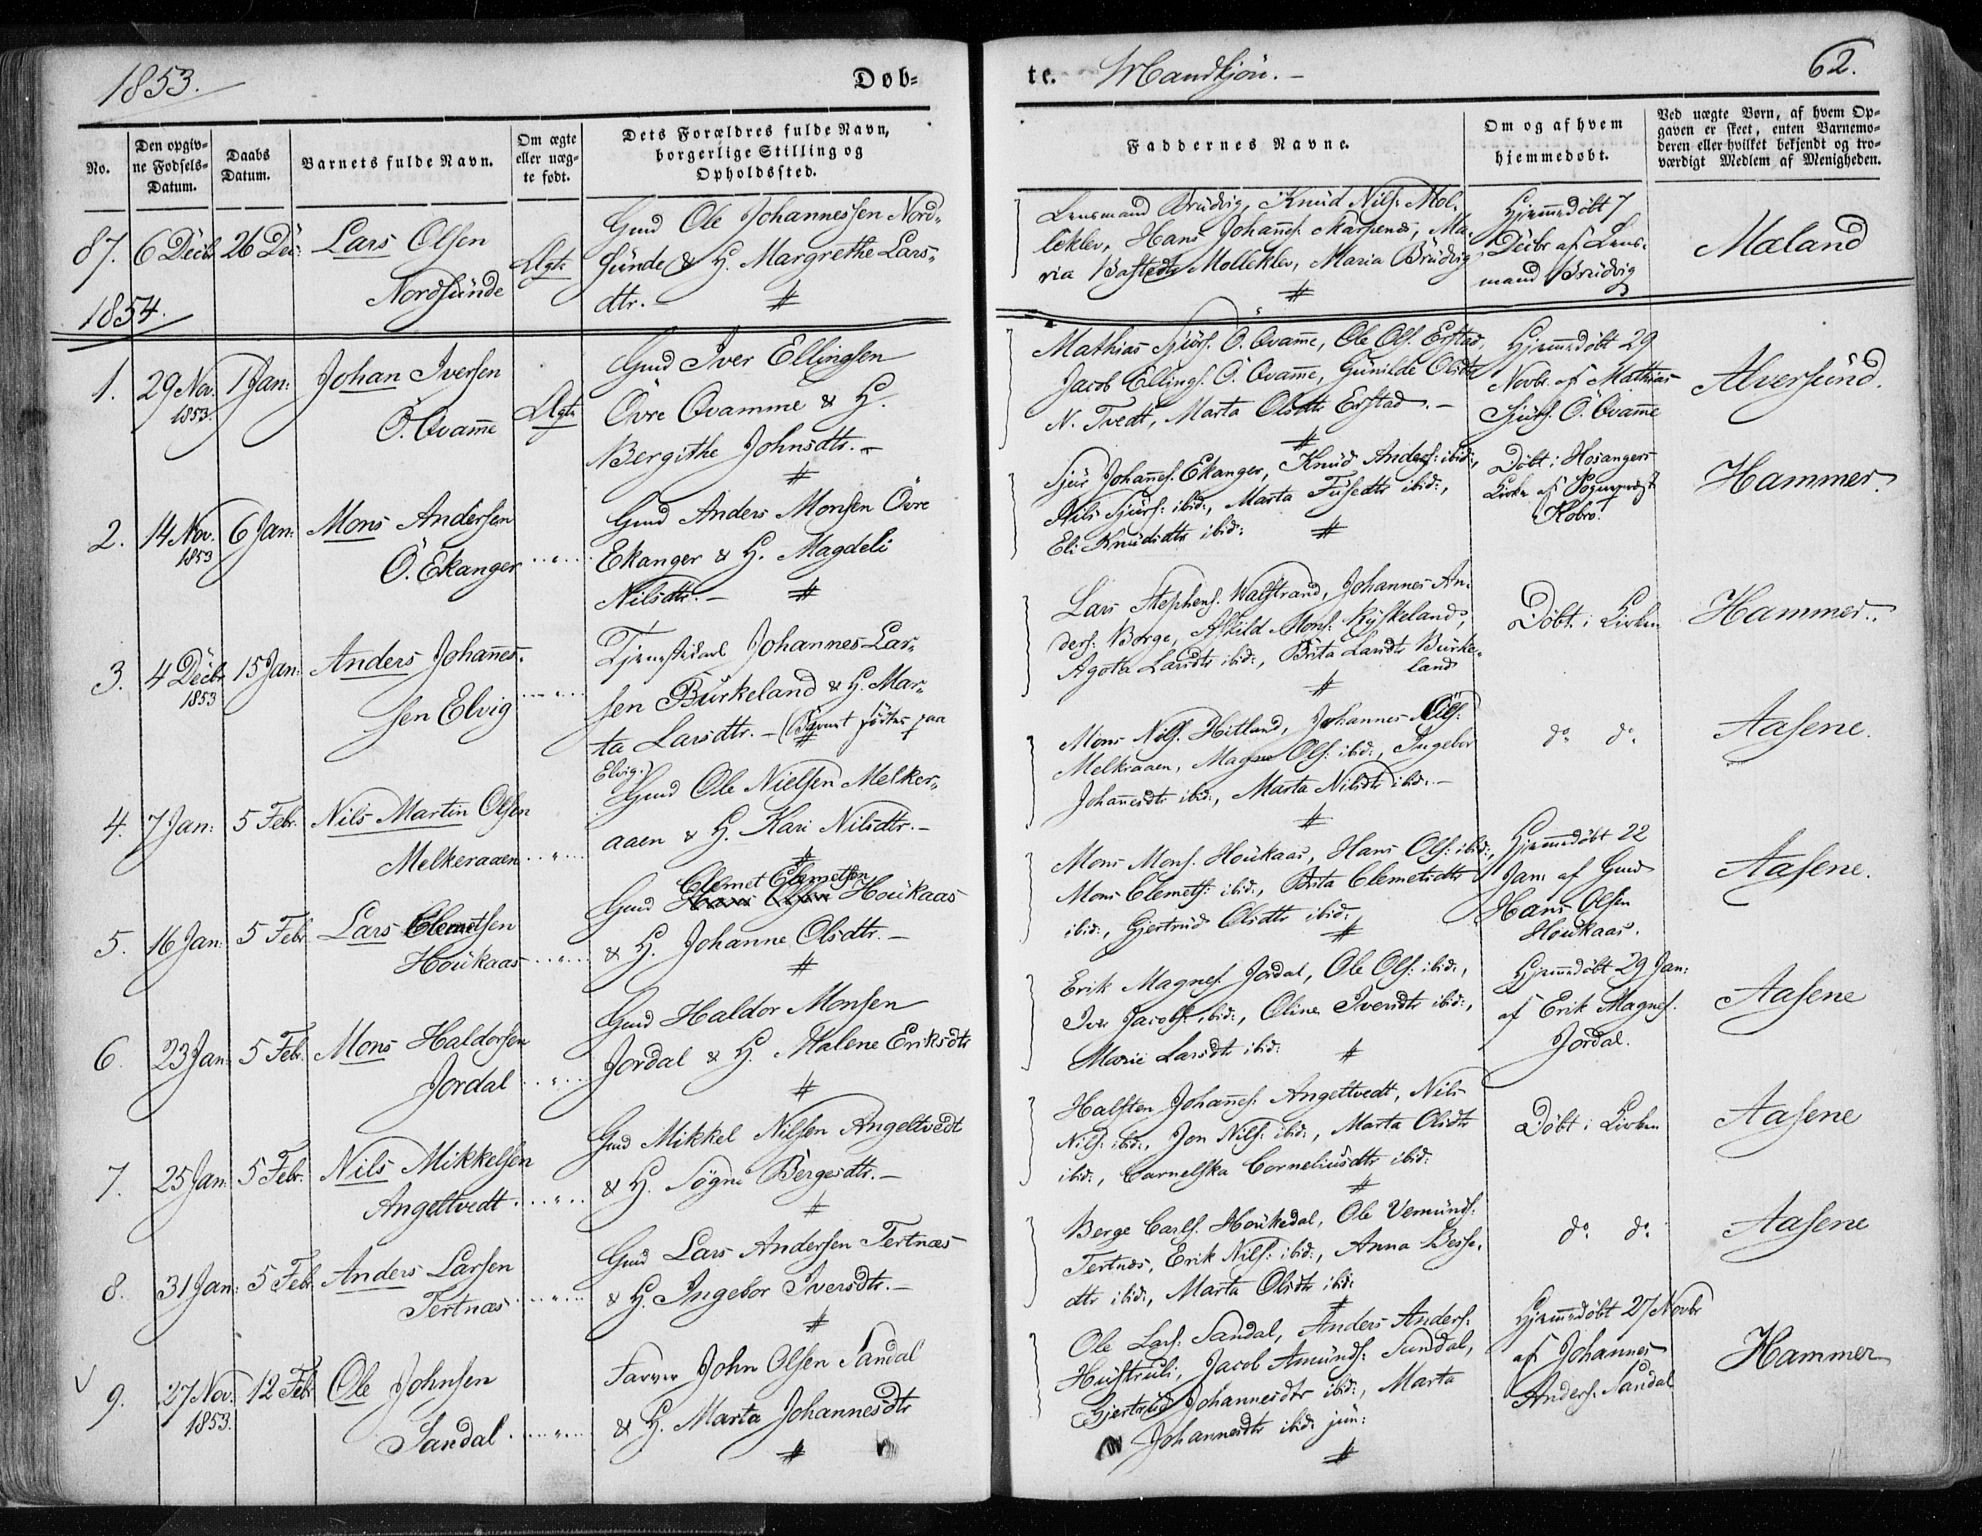 1853.
Døb=
No.
Den opgiv=
ne Fødsels=
Datum.
Daabs
Datum.
Barnets fulde Navn.
Om ægte
eller uæg=
te født.
Dets Forældres fulde Navn,
borgerlige Stilling og
Opholdssted.
87. 6 Decbr 26 Dec: Lars Olsen
Nordsünde
Ægte
Gmd Ole Johannessen Nord-
sünde & H. Margrethe Lars-
dtr.
1854.
1. 29 Nov. 1853. 1 Jan: Johan Iversen
Ö. Qvam̄e
Ægte
Gmd Iver Ellingsen
Övre Qvamme & H.
Bergithe Johnsdtr.
2. 14 Nov. 1853 6 Jan: Mons Andersen
Ö. Ekanger
Gmd Anders Monsen Övre
Ekanger & H. Magdeli
Nilsdtr.
3. 4 Decbr 1853 15 Jan: Anders Johan̄es-
sen Elvig
Johannes Lar-
sen Bürkeland & H. Mar-
ta Larsdtr. (Barnet födtes paa
Elvig.)
4. 7 Jan: 5 Febr. Nils Martin Olsen
Melkeraaen
Gmd Ole Nielsen Melker-
aaen & H. Kari Nilsdtr.
5. 16 Jan: 5 Febr Lars Clemetsen
Houkaas
Clemet Clemetsen
Gmd Hans Olsen Houkaas
& H. Johanne Olsdtr.
6. 23 Jan: 5 Feb. Mons Haldorsen
Jordal
Gmd Haldor Monsen
Jordal & H. Malene Eriksdtr
7. 25 Jan: 5 Febr. Nils Mikkelsen
Angeltvedt
Gmd Mikkel Nilsen Angeltvedt
& H. Sögni Bergesdtr.
8. 31 Jan: 5 Febr. Anders Larsen
Tertnæs
Gmd Lars Andersen Tertnæs
& H. Ingebor Iversdtr.
9. 27 Nov. 1853. 12 Febr Ole Johnsen
Sandal
Farver John Olsen Sandal
& H. Marta Johannesdtr
te. Mandkjön.
62.
Faddernes Navne.
Om og af hvem
hjemmedøbt.
Ved uægte Børn, af hvem Op=
gaven er skeet, enten Barnemo=
deren eller hvilket bekjendt og tro=
værdigt Medlem af Menigheden.
Lensmand Brüdvig, Knüd Nils. Mol-
leklev, Hans Johan̄es. Skarpenes, Ma-
ria Molleklev, Maria Brüdvig
Hjemmedöbt 7
Decbr af Lens-
mand Brüdvig
Mæland
Mathias Sjürs. Ö. Qvam̄e, Ole Ols. Erstad,
Jacob Ellings. Ö. Qvam̄e, Gunilde Olsdtr
N. Tvedt, Marta Olsdtr Erstad.
Hjemmedöbt 29
Novbr. af Mathias
Sjürs. Ö. Qvam̄e
Alversünd.
Sjür Johan̄es. Ekanger, Knüd Anders: ibid:,
Nils Sjürs: ibid:, Marta ibid:,
Eli Knüdsdtr ibid:
Döbt i Hosangers
Kirke af Sogneprest
Kobro.
Hammer.
Lars Stephens. Johannes An-
ders. Borge, Askild Mons. Ryskeland,
Agota Larsdtr ibid:, Brita Larsdtr Bürke-
land
Döbt i Kirken
Hammer.
Mons Nils. Hitland, Johannes Nils:
Melkraaen, Magne Ols: ibid:, Ingebor
Johan̄esdtr ibid:, Marta Nilsdtr ibid:
do. do.
Aasene.
Mons Mons. Houkaas, Hans Ols: ibid:,
Mons Clemets: ibid:, Brita Clemetsdtr
ibid:, Gjertrud Olsdtr ibid:
Hjemmedöbt 22
Jan: af Gmd
Hans Olsen
Houkaas.
Aasene.
Erik Magnes. Jordal, Ole Ols: ibid:,
Iver Jacobs: ibid:, Oline Iversdtr ibid:,
Marie Larsdtr ibid:
Hjemmedöbt 29 Jan:
af Erik Magnes.
Jordal.
Aasene
Halsten Johan̄es. Angeltvedt, Nils
Nils: ibid:, Jon Nils: ibid:, Marta Olsdtr
ibid:, Carnelska Corneliusdtr ibid:
Döbt i Kirken
Aasene
Berge Carls. Houkedal, Ole Vemünds:
Tertnæs, Erik Nils: ibid:, Anna Besse-
dtr ibid:, Marta Olsdtr ibid:
do. do.
Aasene
Ole Lars: Sandal, Anders Anders:
Hüstrüli, Jacob Amünds: Sandal,
Gjertrüd Johannesdtr ibid:, Marta
Johannesdtr ibid: jün:
Hjemmedöbt 27 Novbr
af Johannes
Anders. Sandal
Hammer